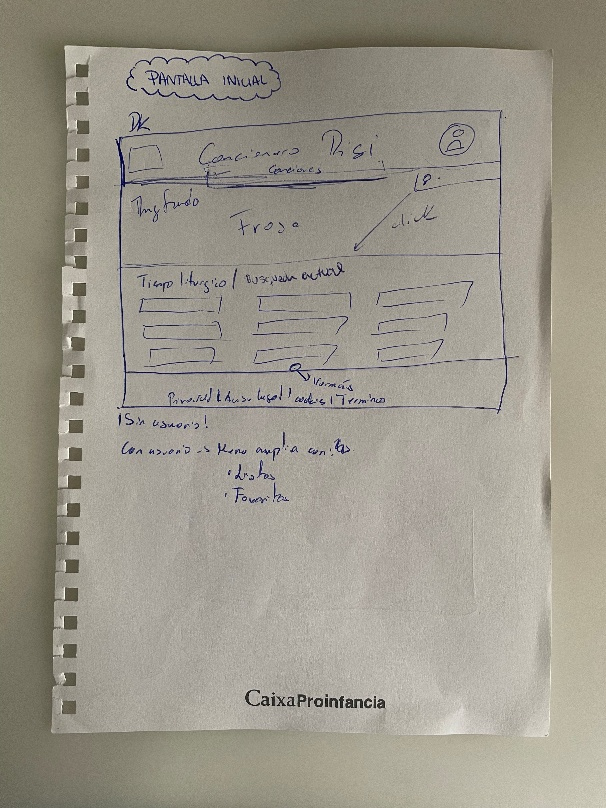 PANTALLA INICIAL
DK
Cancionero
Canciones
Img fondo
Frase
click
Tiempo liturgico / Busqueda actual
Ver más
Privacidad / Aviso legal / cookies / Terminos
¡Sin usuario!
Con usuario → Menu amplia con:
· Listas
· Favoritos
CaixaProinfancia